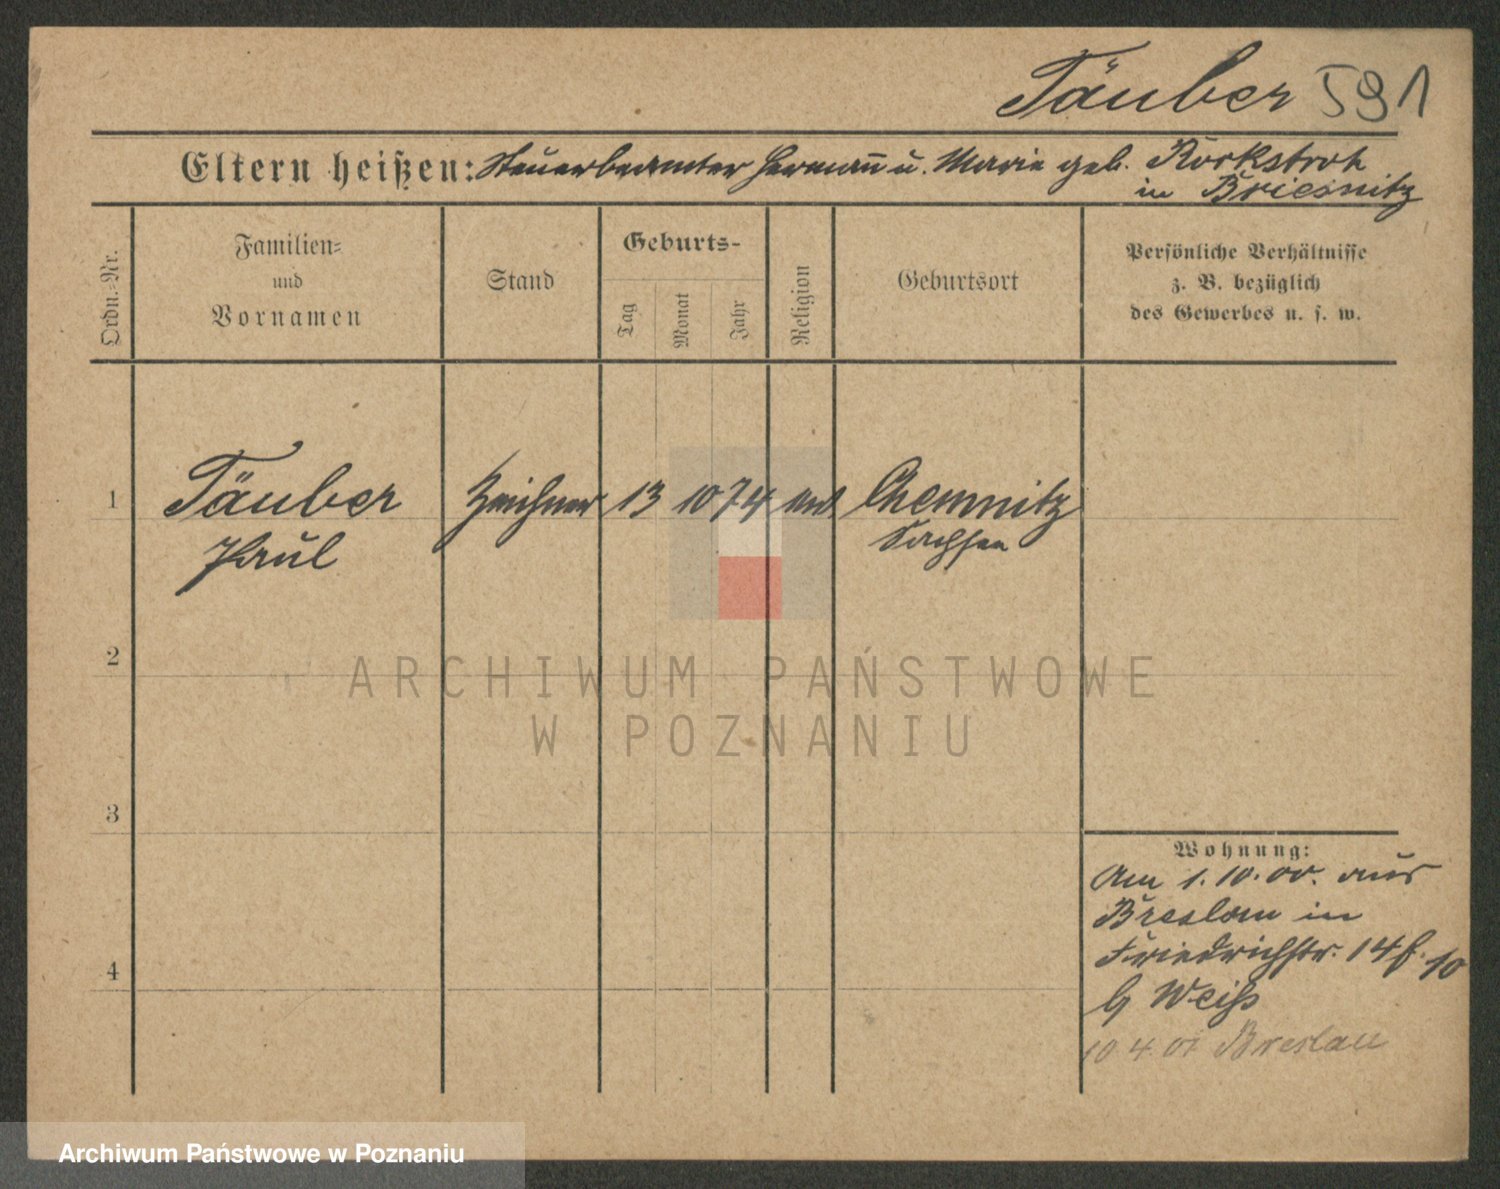 Täuber 591
Eltern heißen: Steuerbeamter Hermann u. Marie geb. Korkstroh
in Briesnitz
Ordn.-Nr.
Familien-
und
Vornamen
Stand
Geburts-
Tag
Monat
Jahr
Religion
Geburtsort
Persönliche Verhältnisse
z. B. bezüglich
des Gewerbes u. s. w.
1 Täuber Zeichner 13 10 74 Chemnitz
Paul Sachsen
2
ARCHIWUM PAŃSTWOWE
W POZNANIU
3
Wohnung:
Am 1.10.00. aus
Breslau in
Friedrichstr. 14
b/ Weiß
4
10 4 01 Breslau
Archiwum Państwowe w Poznaniu